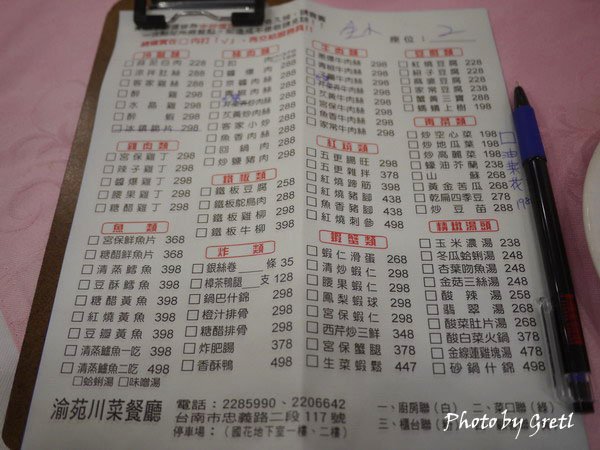 座位：2
冷盤類
蒜泥白肉 228
涼拌肚絲 288
客家雞絲 288
醉雞 298
水晶雞 298
醉蝦 298
雞肉類
宮保雞丁 298
辣子雞丁 298
醬爆雞丁 298
腰果雞丁 298
糖醋雞丁 298
魚類
宮保鮮魚片 368
糖醋鮮魚片 368
清蒸鱈魚 398
豆酥鱈魚 398
糖醋黃魚 398
紅燒黃魚 398
豆瓣黃魚 398
清蒸鱸魚一吃 398
清蒸鱸魚二吃 498
蛤蜊湯 味噌湯
豬肉類
醬爆肉 298
京醬肉絲 298
客家小炒
魚香肉絲
回鍋肉 288
炒鹽豬肉 288
鐵板類
鐵板豆腐 258
鐵板鴕鳥肉 288
鐵板雞柳 298
鐵板牛柳 298
炸類
銀絲卷 條 35
樟茶鴨腿 支 128
鍋巴什錦 298
橙汁排骨 298
糖醋排骨 298
炸肥腸 378
香酥鴨 498
牛肉類
家常牛肉絲 288
紅燒類
五更腸旺 298
五更雜拌 378
紅燒蹄筋 398
紅燒豬腳 438
魚香豬腳 438
紅燒刺參 498
蝦蟹類
蝦仁滑蛋 268
清炒蝦仁 298
腰果蝦仁 298
鳳梨蝦球 298
宮保蝦仁 298
西芹炒三鮮 348
宮保蟹腿 378
生菜蝦鬆 447
豆腐類
紅燒豆腐 228
蚵子豆腐 228
麻婆豆腐 228
家常豆腐 238
蟹黃三寶 288
螞蟻上樹 198
青菜類
炒空心菜 198
炒地瓜葉 198
炒高麗菜 198
蠔油芥蘭 238
山蘇 268
黃金苦瓜 268
乾扁四季豆 278
炒豆苗 288
精燉湯類
玉米濃湯 238
冬瓜蛤蜊湯 248
杏葉吻魚湯 248
金菇三絲湯 248
酸辣湯 258
翡翠湯 268
酸菜肚片湯 268
酸白菜火鍋 378
金線蓮雞塊湯 478
砂鍋什錦 498
渝苑川菜餐廳
電話：2285990、2206642
台南市忠義路二段117號
停車場：（國花地下室一樓、二樓）
一、廚房聯（白） 二、菜口聯（綠）
三、櫃台聯
Photo by Gretl